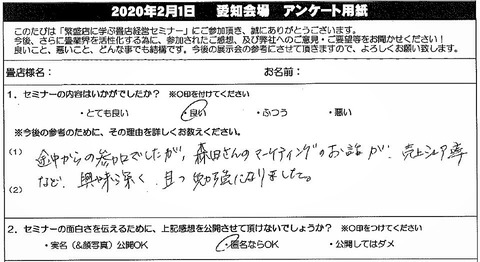 2020年2月1日　愛知会場　アンケート用紙
このたびは「繁盛店に学ぶ畳店経営セミナー」にご参加頂き、誠にありがとうございます。
今後、さらに畳業界を活性化する為に、参加されたご感想、及び弊社へのご意見・ご要望等をお聞かせください!
良いこと、悪いこと、どんな事でも結構です。今後の展示会の参考にさせて頂きますので、よろしくお願い致します。
畳店様名:　お名前:
1．セミナーの内容はいかがでしたか?　※〇印を付けてください
・とても良い　・良い　・ふつう　・悪い
※今後の参考のために、その理由を詳しくお教えください。
(1)　途中からの参加でしたが、森田さんのマーケティングのお話が、売上シェア率
(2)　など、興味深く、且つ勉強になりました。
2．セミナーの面白さを伝えるために、上記感想を公開させて頂けないでしょうか?　※〇印をつけてください
・実名（&顔写真）公開OK　・匿名ならOK　・公開してはダメ